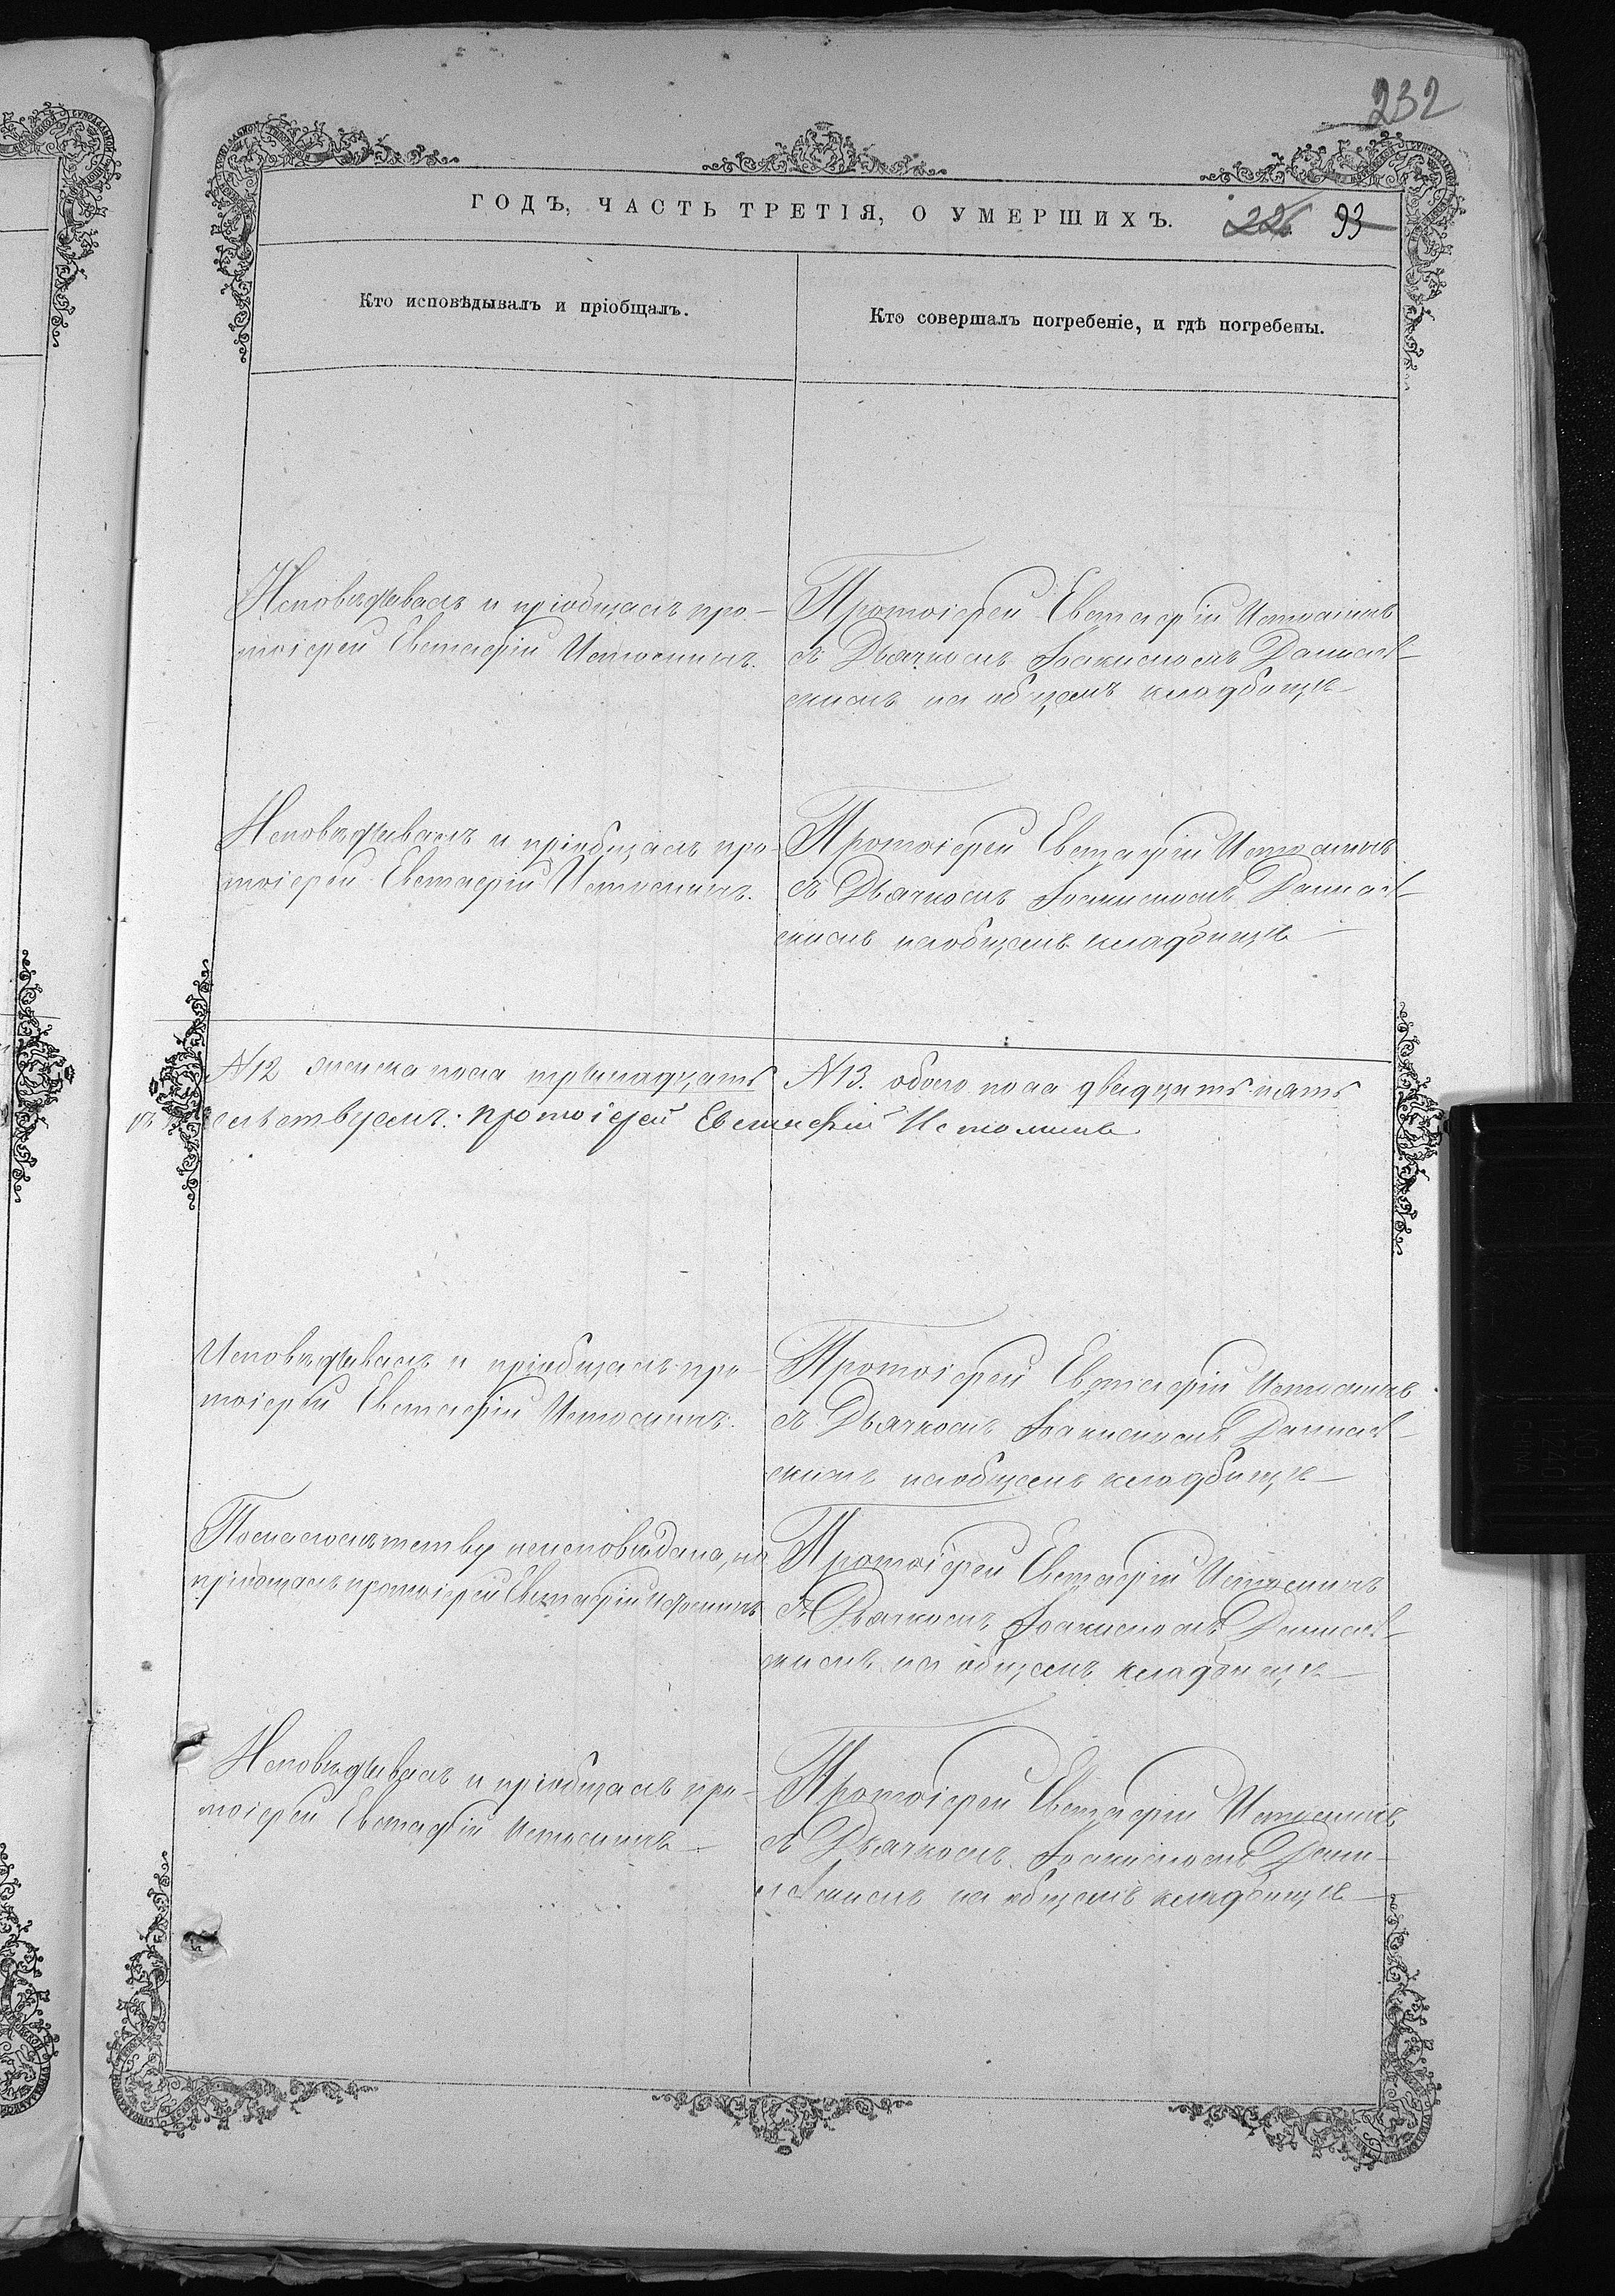 232
ГОДЪ, ЧАСТЬ ТРЕТІЯ, О УМЕРШИХЪ.
226 93
Кто исповѣдывалъ и пріобщалъ.
Кто совершалъ погребеніе, и гдѣ погребены.
Исповѣдывалъ и пріобщалъ про-
тоіерей Евстафій Истоминъ.
Протоіерей Евстафій Истоминъ
съ Дьячкомъ Іоакимомъ
на общемъ кладбищѣ
Исповѣдывалъ и пріобщалъ про-
тоіерей Евстафій Истоминъ.
Протоіерей Евстафій Истоминъ
съ Дьячкомъ Іоакимомъ
на общемъ кладбищѣ
№12 женска пола тринадцать
№13. обоего пола двадцать пять
протоіерей Евстафій Истоминъ
Исповѣдывалъ и пріобщалъ про-
тоіерей Евстафій Истоминъ.
Протоіерей Евстафій Истоминъ
съ Дьячкомъ Іоакимомъ
на общемъ кладбищѣ
По малолѣтству неисповѣдана, а
пріобщалъ протоіерей Евстафій Истоминъ
Протоіерей Евстафій Истоминъ
съ Дьячкомъ Іоакимомъ
на общемъ кладбищѣ
Исповѣдывалъ и пріобщалъ про-
тоіерей Евстафій Истоминъ
Протоіерей Евстафій Истоминъ
съ Дьячкомъ Іоакимомъ
на общемъ кладбищѣ